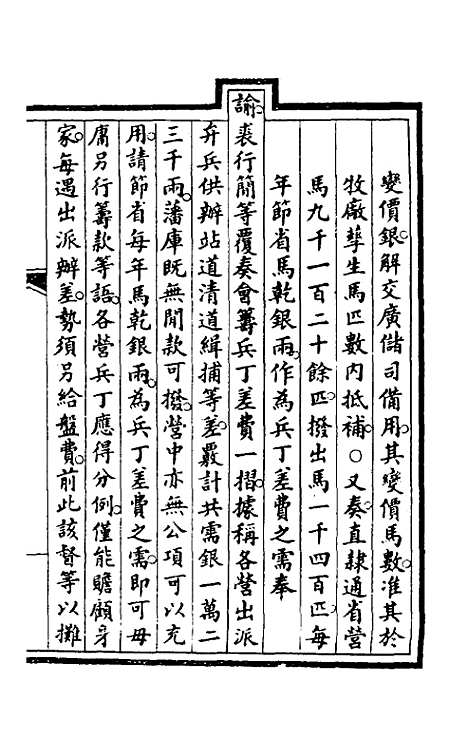 變價銀。解交廣儲司備用。其變價馬數。准其於
牧廠孳生馬匹數內抵補。○又奏。直隸通省營
馬九千一百二十餘匹。撥出馬一千四百匹。每
年節省馬乾銀兩。作為兵丁差費之需。奉
諭。裘行簡等覆奏會籌兵丁差費一摺。據稱各營出派
弁兵供辦站道清道緝捕等差。覈計共需銀一萬二
三千兩。藩庫既無閒款可撥。營中亦無公項可以充
用。請節省每年馬乾銀兩。為兵丁差費之需。即可毋
庸另行籌款等語。各營兵丁應得分例。僅能贍顧身
家。每遇出派辦差。勢須另給盤費。前此該督等以攤